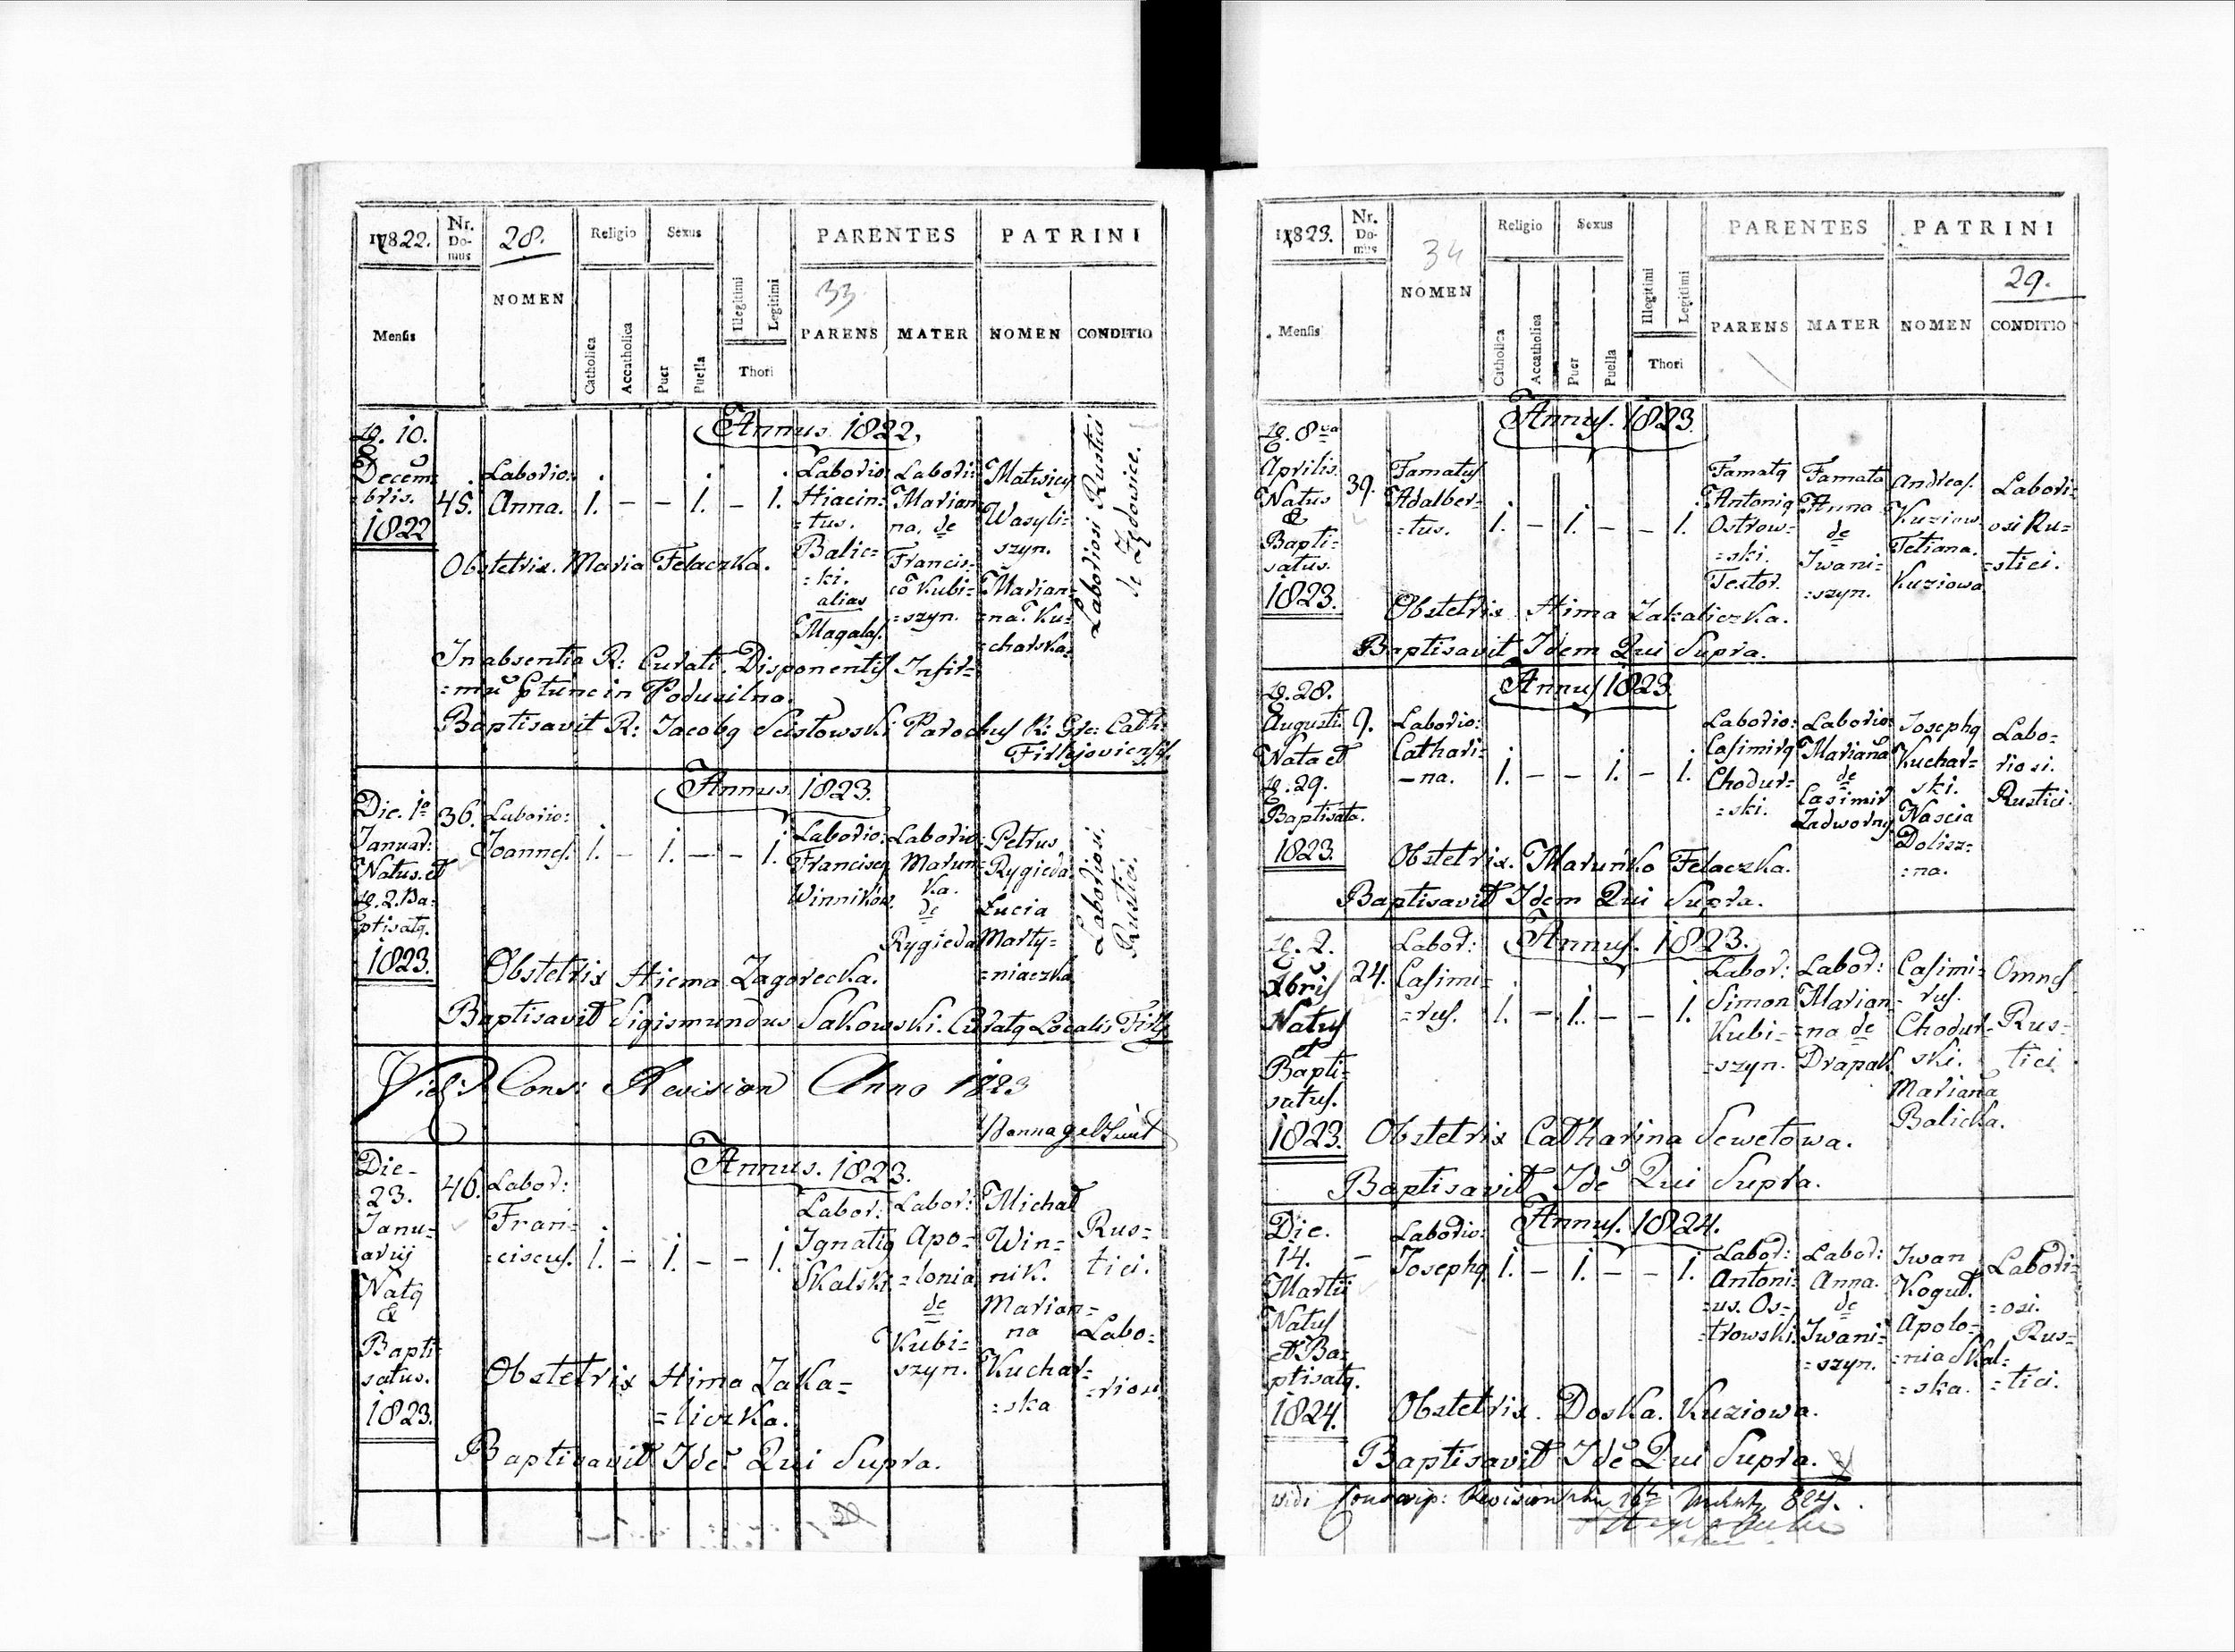 1822.
Nr. Domus
28.
Religio
Sexus
Illegitimi
Legitimi
PARENTES
PATRINI
33
Mensis
NOMEN
Catholica
Accatholica
Puer
Puella
Thori
PARENS
MATER
NOMEN
CONDITIO
Annus 1822,
D. 10.
Decem=
=bris.
1822
45.
Laborio:
Anna.
1. – – 1. – 1.
Laborio:
Hiacin=
=tus.
Balic=
=ki.
alias
Magalas.
Labori:
Marian=
na, de
Francis=
co Kubi=
=szyn.
Matwicy
Wasyli=
szyn.
Marian=
=na Ku=
=charska.
Laboriosi Rustici
de Zędowice.
Obstetrix. Maria Felaczka.
In absentia R: Curati. Disponentis Infir=
=mũ ptunc in Podusilna.
Baptisavit R: Jacobq Scislowski Parochus R: Gre: Cath:
Firlejoviensis.
Annus. 1823.
Die. 1a
Januar:
Natus. et
D. 2. Ba=
ptisatq.
1823.
36.
Laborio:
Joannes.
1. – 1. – – 1.
Laborio:
Franciscq
Winnikow.
Laborio:
Marun=
ka.
de
Rygieda
Petrus
Rygieda
Lucia
Marty=
=niaczka
Laboriosi.
Rustici.
Obstetrix Hiema Zagorecka.
Baptisavit Sigismundus Sakowski. Curatq Localis Firlj
Vidi Cons: Revision Anno 1823
Annus. 1823.
Die
23.
Janu=
arij
Natq
&
Bapti=
satus.
1823.
46.
Labor:
Fran=
=ciscus.
1. – 1. – – 1.
Labor:
Ignatiq
Skalski.
Labor:
Apo=
=lonia
de
Kubi=
szyn.
Michał
Win=
nik.
Marian=
na
Kuchar=
=ska
Rus=
tici.
Labo=
=riosi.
Obstetrix Hima Zaka=
=liczka.
Baptisavit Idẽ Qui Supra.
1823.
Nr. Domus
34
Religio
Sexus
Illegitimi
Legitimi
PARENTES
PATRINI
29.
Mensis
NOMEN
Catholica
Accatholica
Puer
Puella
Thori
PARENS
MATER
NOMEN
CONDITIO
Annus. 1823.
D. 8va
Aprilis.
Natus
&
Bapti=
satus.
1823.
39.
Famatus
Adalber=
=tus.
1. – 1. – – 1.
Famatq
Antoniq
Ostrow=
=ski.
Textor.
Famata
Anna
de
Iwani=
=szyn.
Andreas.
Kuziow
Tetiana.
Kuziowa
Labori=
osi Ru=
=stici.
Obstetrix Hima Zakaliczka.
Baptisavit Idem Qui Supra.
Annus 1823.
D. 28.
Augusti.
Nata et
D. 29.
Baptisata.
1823.
9.
Laborio:
Cathari=
–na.
1. – – 1. – 1.
Laborio:
Casimirq
Chodur=
=ski.
Laborio:
Mariana
de
Casimir
Zadworny.
Josephq
Kuchar=
ski.
Nascia
Dolisz=
=na.
Labo=
riosi.
Rustici.
Obstetrix. Maruńka Felaczka.
Baptisavit Idem Qui Supra.
Annus. 1823.
D. 2.
Xbris
Natus
et
Bapti=
satus.
1823.
24.
Labor:
Casimi=
=rus.
1. – 1. – – 1.
Labor:
Simon
Kubi=
=szyn.
Labor:
Marian=
=na de
Drapak
Casimi=
rus.
Chodur=
ski.
Mariana
Balicka.
Omnes
Rus=
tici
Obstetrix Catharina Sewetowa.
Baptisavit Idẽ Qui Supra.
Annus. 1824.
Die.
14.
Martii
Natus
et Ba=
ptisatq.
1824.
–
Laborio:
Josephq
1. – 1. – – 1.
Labor:
Antoni=
=us. Os=
=trowski.
Labor:
Anna.
de
Iwani=
=szyn.
Iwan
Kogut.
Apolo=
=nia Skal=
=ska.
Labori=
=osi.
Rus=
=tici.
Obstetrix. Doska. Kuziowa.
Baptisavit Idẽ Qui Supra.
vidi Conscrip: Revision 824.